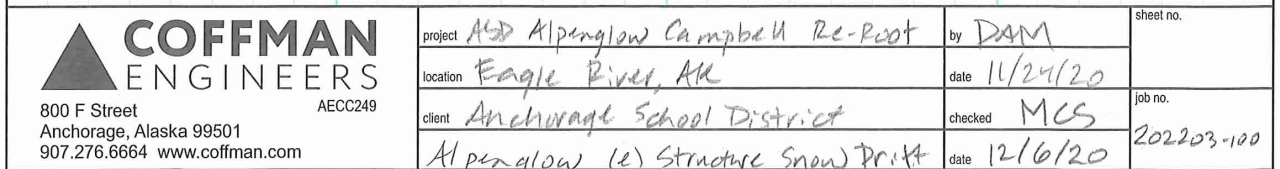 COFFMAN
ENGINEERS
800 F Street AECC249
Anchorage, Alaska 99501
907.276.6664 www.coffman.com
project ASD Alpenglow Campbell Re-Roof
location Eagle River, AK
client Anchorage School District
Alpenglow (e) Structure Snow Drift
by DAM
date 11/24/20
checked MCS
date 12/6/20
sheet no.
job no.
202203-100